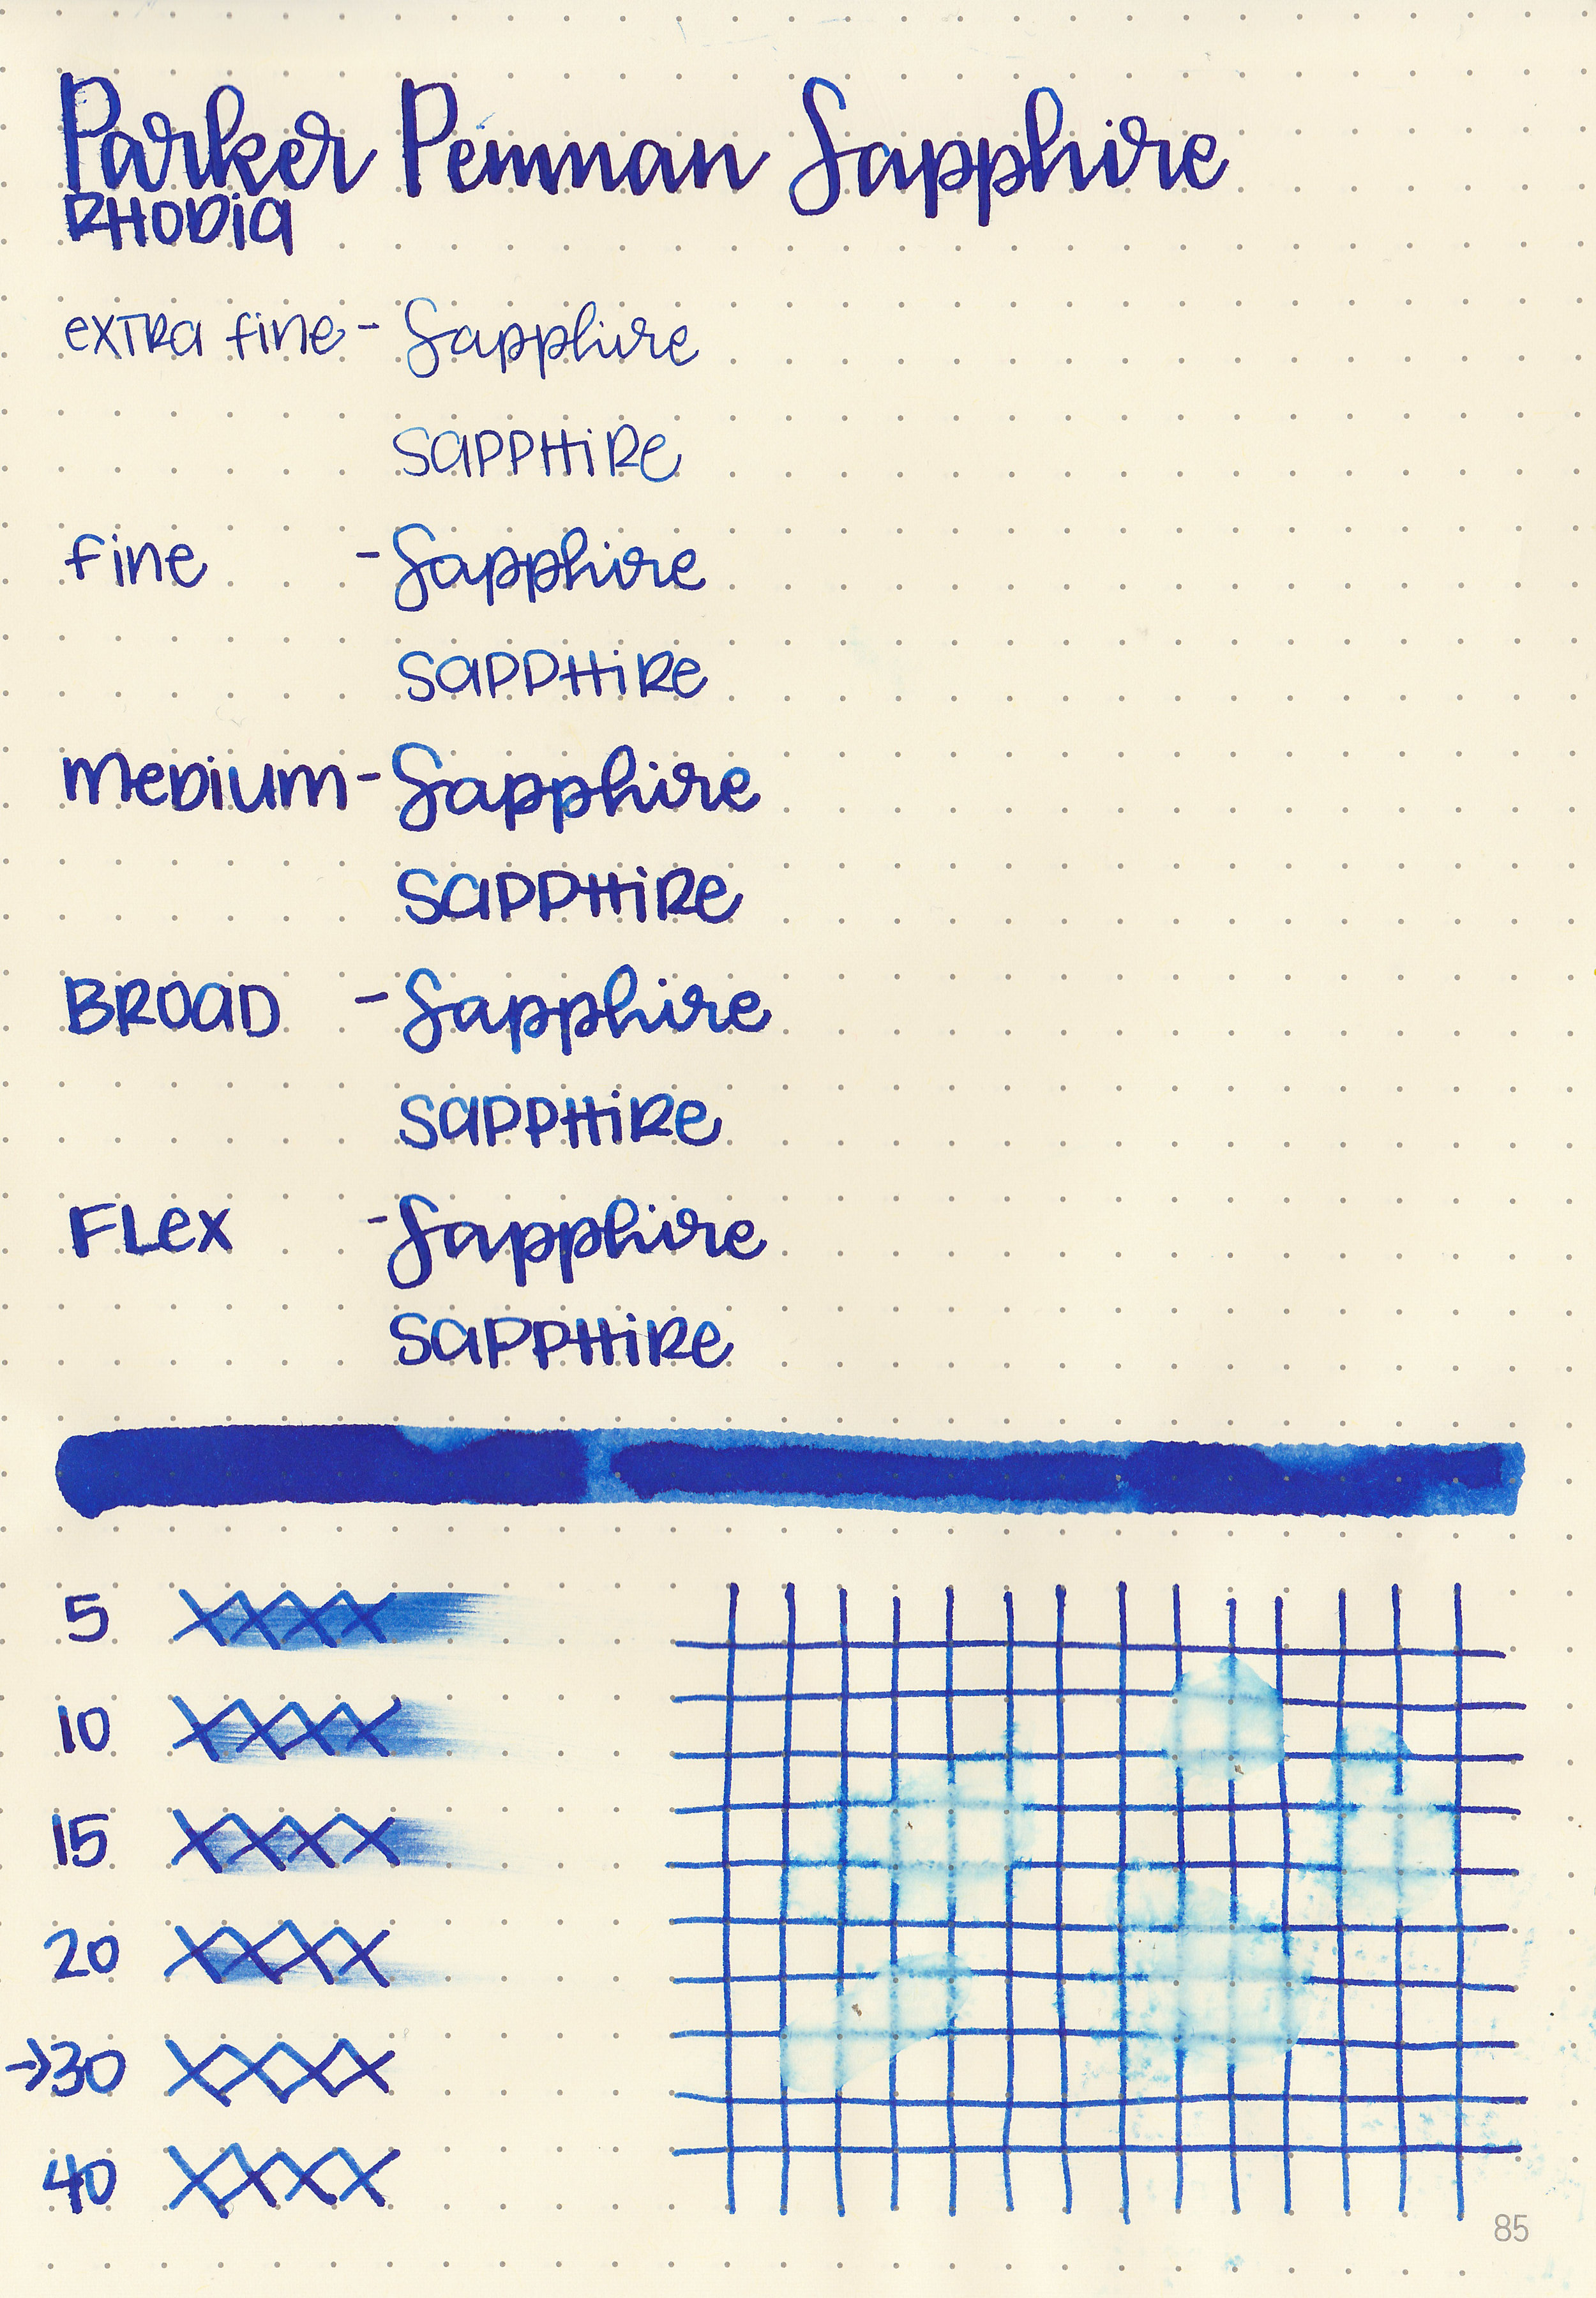 Parker Penman Sapphire
RHODia
exTRa fine - Sapphire
SaPPHiRe
fine - Sapphire
SaPPHiRe
meDium - Sapphire
SaPPHiRe
BROaD - Sapphire
SaPPHiRe
FLex - Sapphire
SaPPHiRe
5 XXXX
10 XXXX
15 XXXX
20 XXXX
→30 XXXX
40 XXXX
85